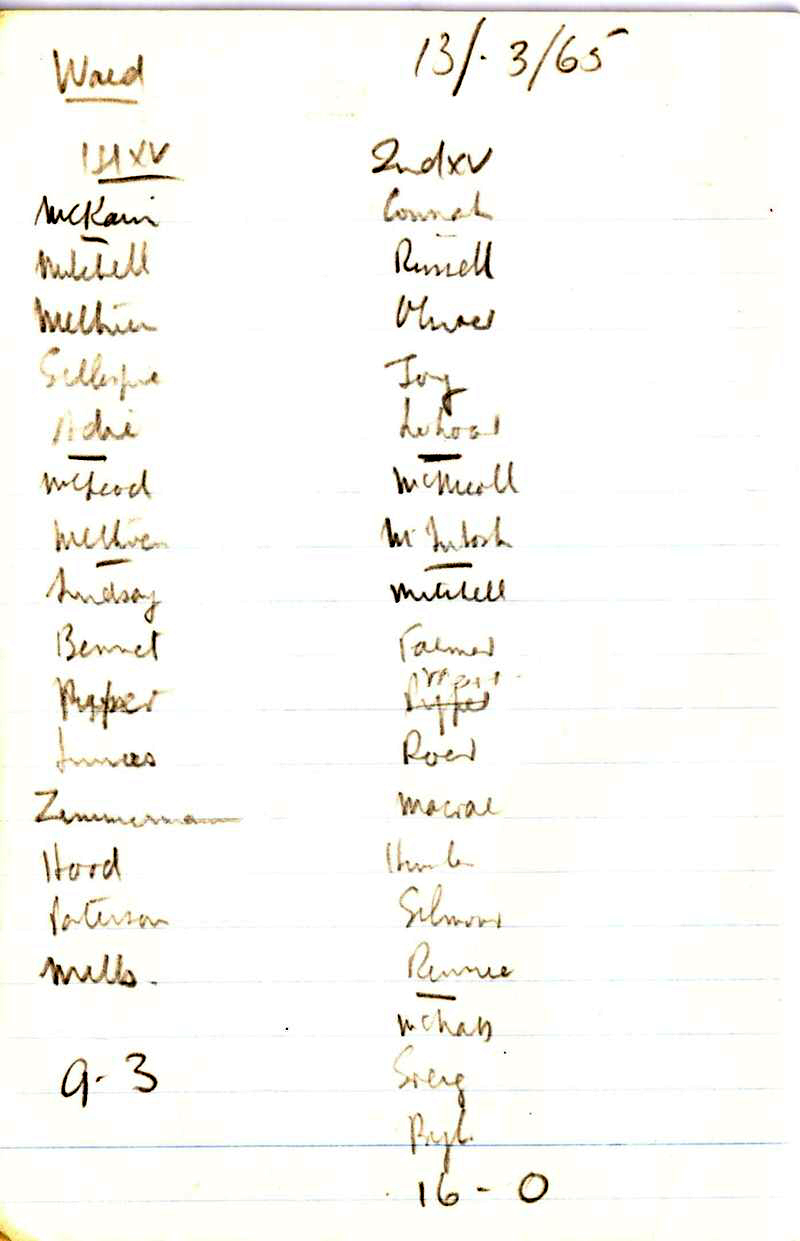 Ward 13/.3/65
1st XV
McKain
Mitchell
Methven
Gillespie
Adie
McLeod
Methven
Lindsay
Bennet
Pepper
Innes
Zimmermann
Hood
Paterson
Mills.
9-3
2nd XV
Connah
Russell
Oliver
Joy
McNicoll
McIntosh
Mitchell
Farmer
Roed
Macrae
Gilmour
Rennie
McNab
Greig
16-0